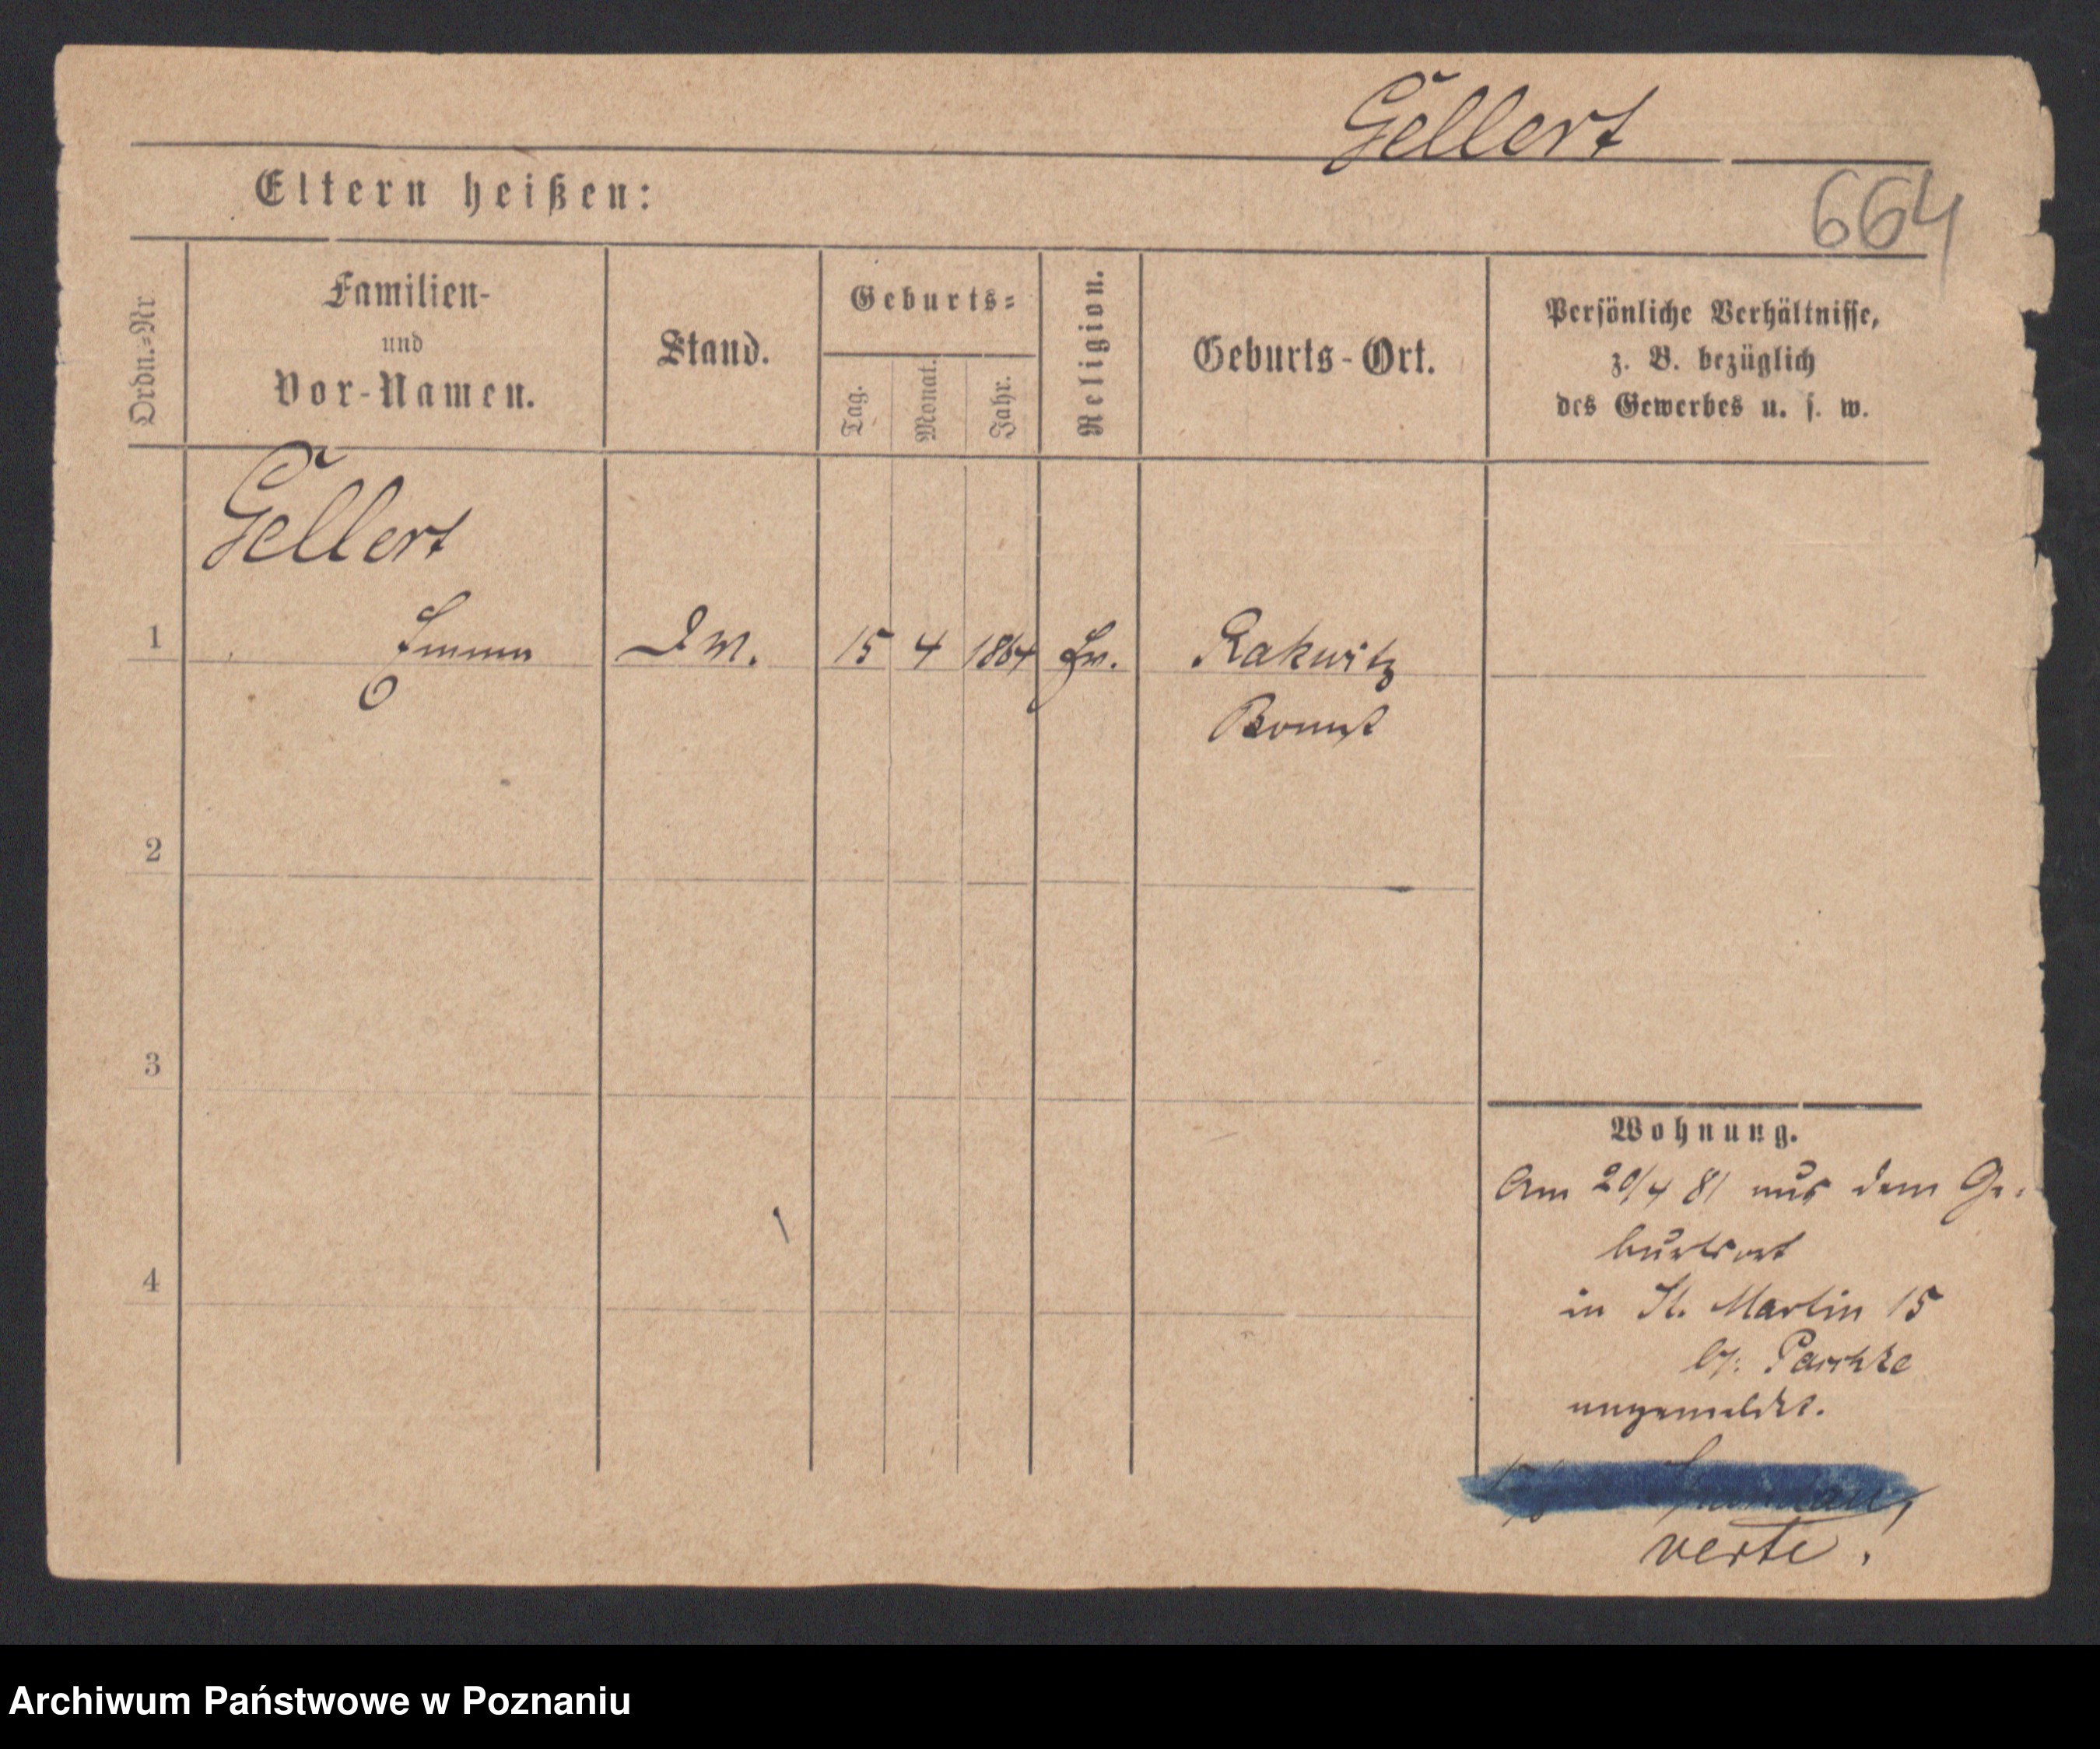 Gellert
Eltern heißen:
664
Ordn.-Nr.
Familien-
und
Vor-Namen.
Stand.
Geburts-
Tag.
Monat.
Jahr.
Religion.
Geburts-Ort.
Persönliche Verhältnisse,
z. B. bezüglich
des Gewerbes u. s. w.
Gellert
1 Emma D M. 15 4 1864 Ev. Rakwitz
Bomst
2
3
4
Wohnung.
Am 20/4 81 aus dem Ge-
burtsort
in St. Martin 15
b/. Paschke
angemeldet.
verte.
Archiwum Państwowe w Poznaniu